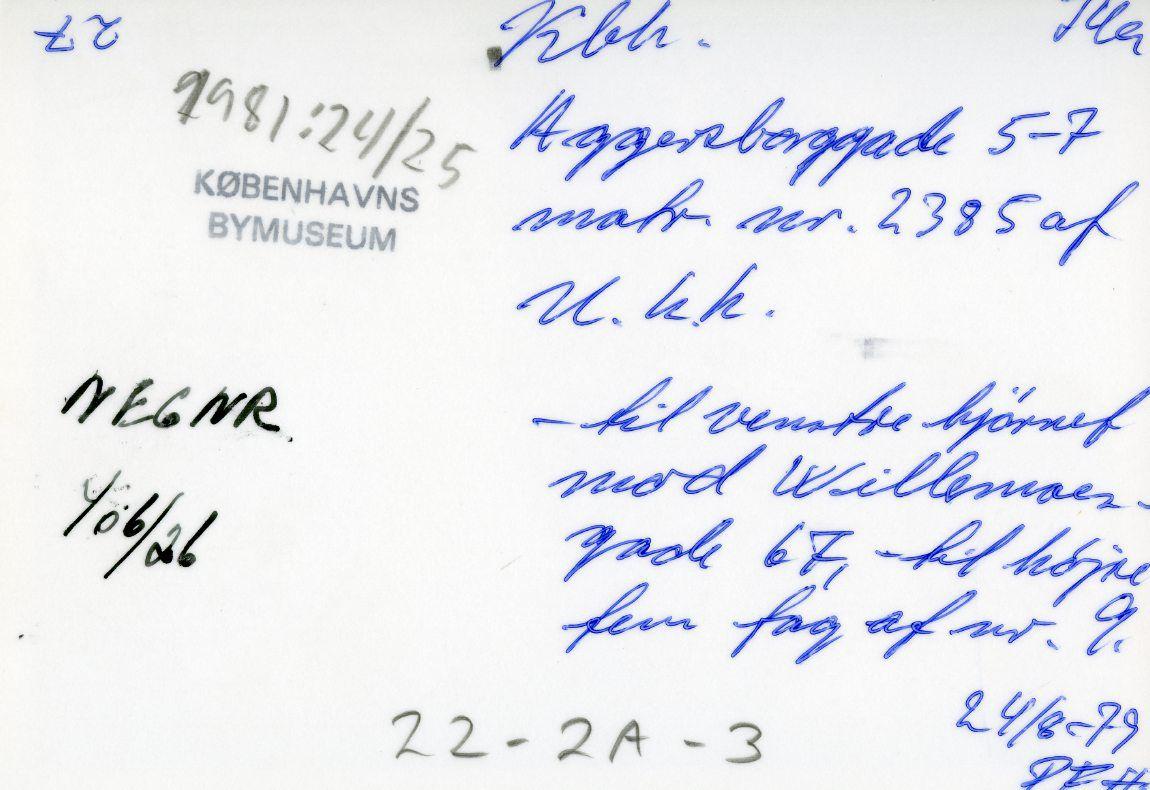 27
Kbh.
1981:24/25
KØBENHAVNS
BYMUSEUM
Aggersborggade 5-7
matr. nr. 2385 af
U.k.k.
NEG NR.
406/26
- til venstre hjørnet
mod Willemoes-
gade 67, - til højre
fem fag af nr. 9.
22-2A-3
24/8-79